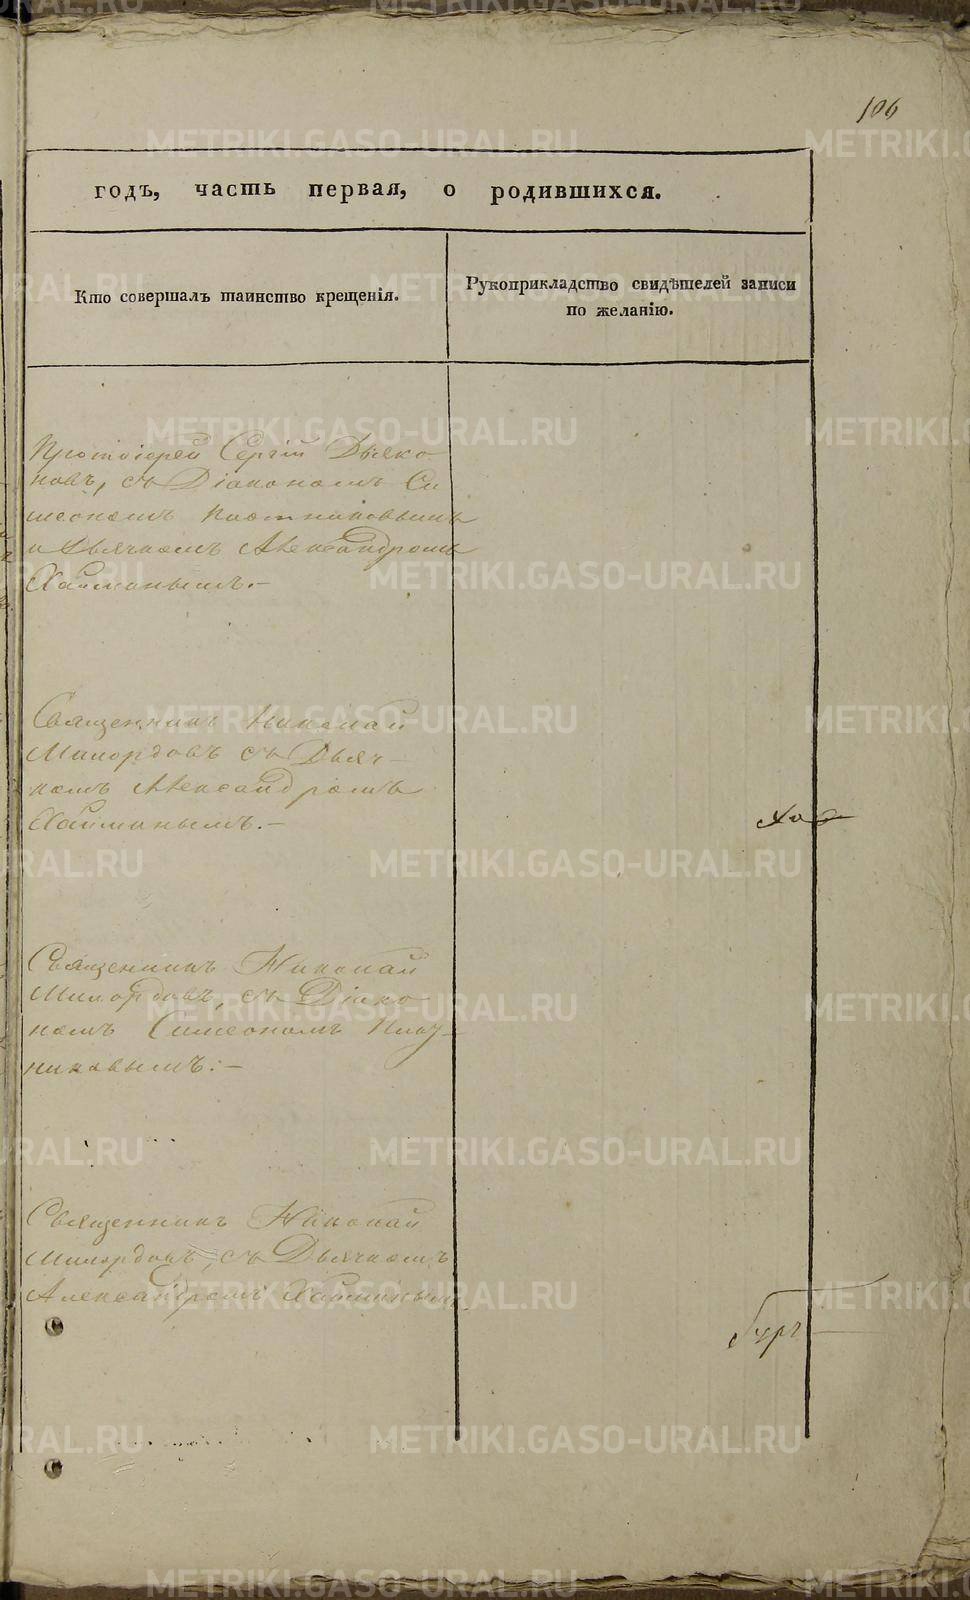 106
годъ, часть первая, о родившихся.
Кто совершалъ таинство крещенія.
Рукоприкладство свидѣтелей записи
по желанію.
Протоіерей Сергій Дьяко-
новъ, съ Діакономъ Си
меономъ
и Дьячкомъ Александромъ
Священникъ Николай
Милордовъ съ Дьяч-
комъ Александромъ
Священникъ Николай
Милордовъ, съ Діако
номъ Симеономъ
Священникъ Николай
Милордовъ, съ Дьячкомъ
Александромъ
METRIKI.GASO-URAL.RU